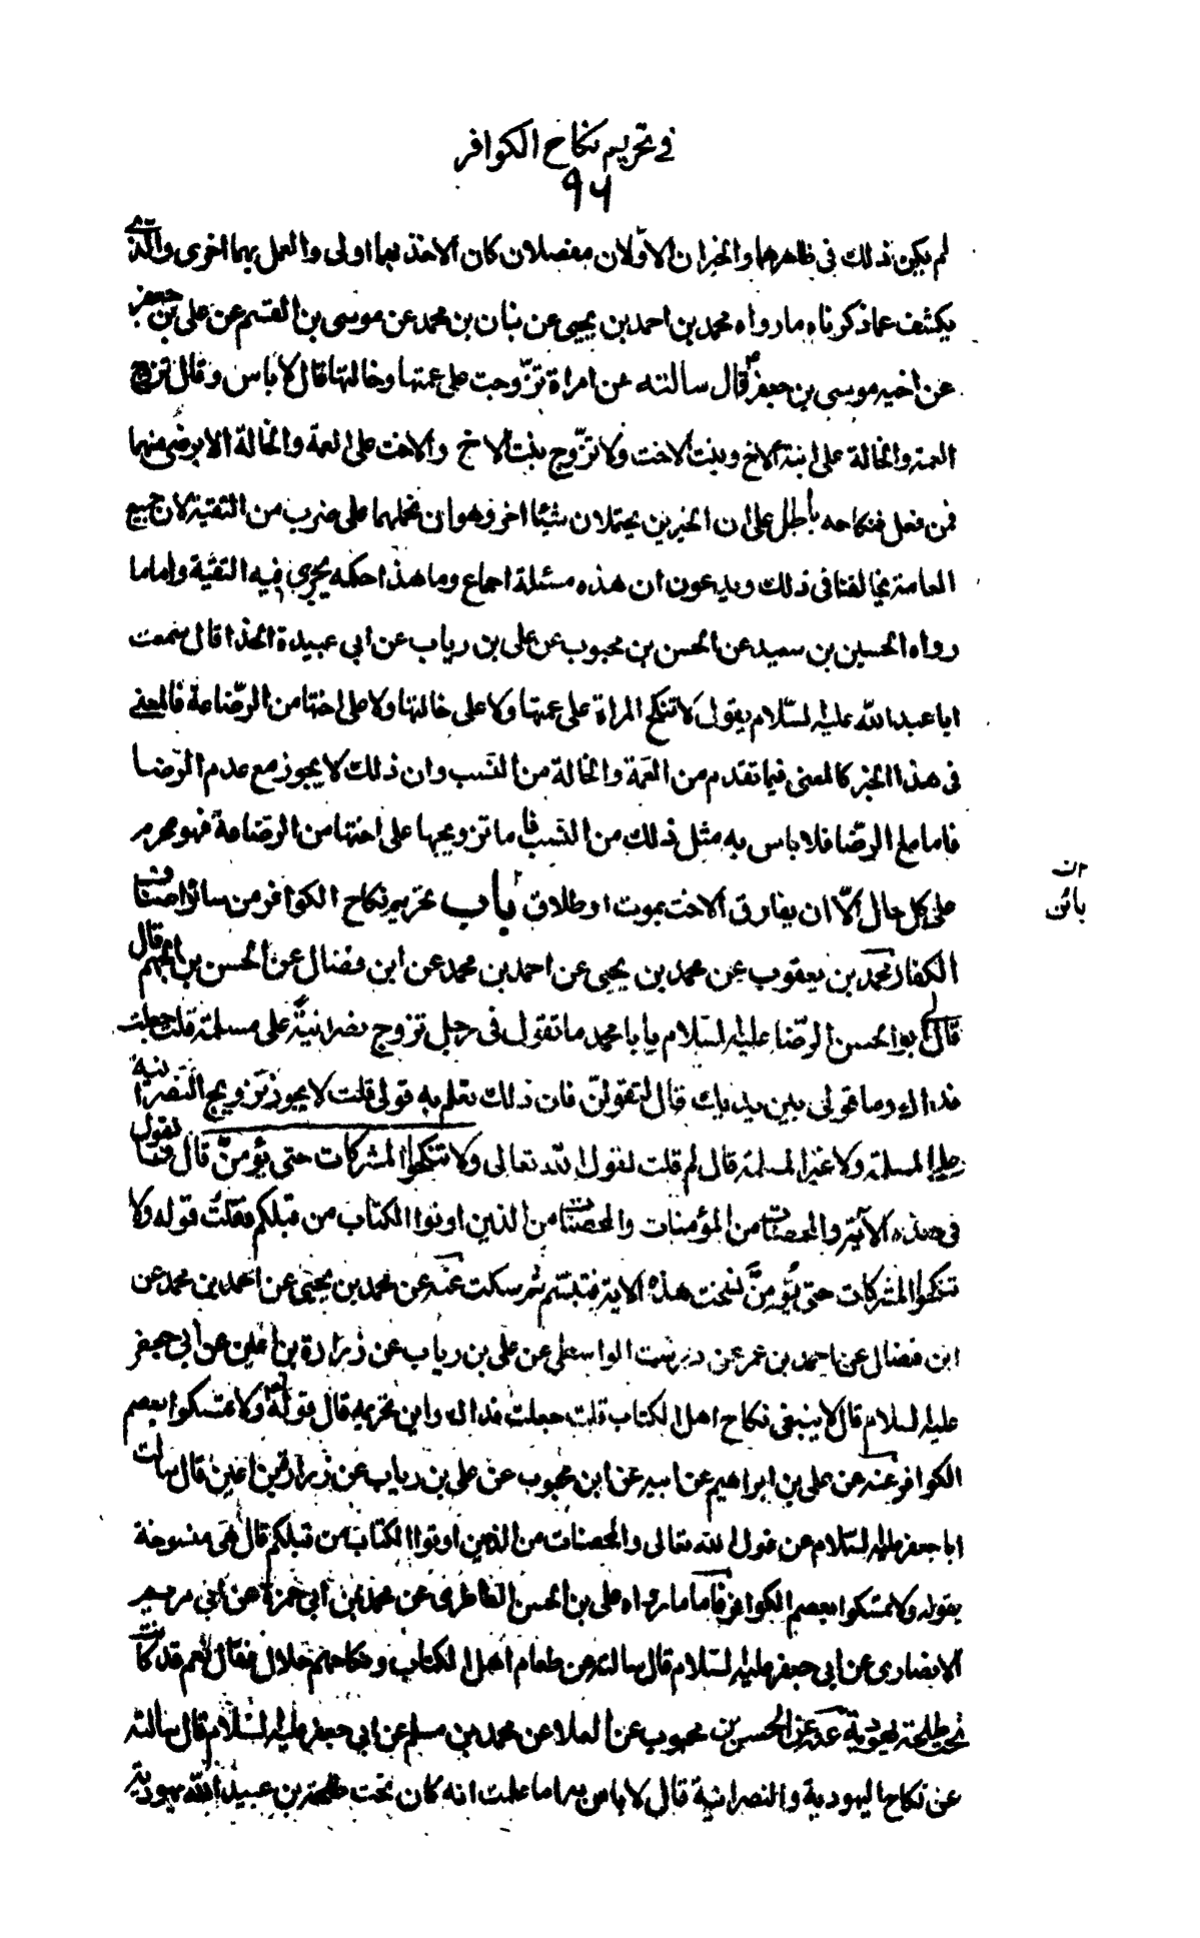 في تحريم نكاح الكوافر
٩٦
لم يكن ذلك في ظاهرهما والخبران الاوّلان مفصلان كان الاخذ بهما اولى والعمل بهما احرى والّذي
يكشف عما ذكرناه ما رواه محمد بن احمد بن يحيى عن بنان بن محمد عن موسى بن القسم عن على بن جعفر
عن اخيه موسى بن جعفر ع قال سالته عن امراة تزّوجت على عمتها وخالتها قال لا باس وقال تزوج
العمة والخالة على ابنة الاخ وبنت الاخت ولا تزّوج بنت الاخ والاخت على العمة والخالة الا برضى منهما
فمن فعل فنكاحه باطل على ان الخبرين يحتملان شيئا اخر وهو ان نحملهما على ضرب من التقية لان جميع
العامة يخالفنا في ذلك ويدعون ان هذه مسئلة اجماع وما هذا حكمه يجرى فيه التقيّة واما ما
رواه الحسين بن سعيد عن الحسن بن محبوب عن على بن رياب عن ابي عبيدة الحذا قال سمعت
ابا عبد الله عليه السّلام يقول لا تنكح المراة على عمتها ولا على خالتها ولا على اختها من الرّضاعة فالمعنى
في هذا الخبر كالمعنى فيما تقدم من العمّة والخالة من النّسب وان ذلك لا يجوز مع عدم الرّضا
فاما مع الرضّا فلا باس به مثل ذلك من النّسب فاما تزويجها على اختها من الرضاعة فهو محرم
على كل حال الّا ان يفارق الاخت بموت او طلاق باب تحريم نكاح الكوافر من سائر اصناف
ان
بائن
الكفار محمد بن يعقوب عن محمد بن يحيى عن احمد بن محمد عن ابن فضال عن الحسن بن الجهم قال
قال لي ابو الحسن الرضّا عليه السّلام يا با محمد ما تقول في رجل تزوج نصرانيّة على مسلمة قلت جعلت
فداك وما قولى بين يديك قال لتقولنّ فان ذلك تعلم به قولى قلت لا يجوز تزويج النّصرانية
على المسلمة ولا غير المسلمة قال لم قلت لقول الله تعالى ولا تنكحوا المشركات حتى يؤمنّ قال فما تقول
في هذه الآية والمحصنات من المؤمنات والمحصنات من الذين اوتوا الكتاب من قبلكم فقلت قوله ولا
تنكحوا المشركات حتى يُؤمِنَّ نسخت هذه الاية فتبسّم ثم سكت عنه عن محمد بن يحيى عن احمد بن محمد عن
ابن فضال عن احمد بن عمر عن درست الواسطى عن على بن رياب عن زرارة بن اعين عن ابي جعفر
عليه السلام قال لا ينبغى نكاح اهل الكتاب قلت جعلت فداك واين تحريمه قال قوله تعالى ولا تمسكوا بعصم
الكوافر عنه عن على بن ابراهيم عن ابيه عن ابن محبوب عن على بن رياب عن زرارة بن اعين قال سالت
ابا جعفر عليه السّلام عن قول الله تعالى والمحصنات من الذين اوتوا الكتاب من قبلكم قال هى منسوخة
بقوله ولا تمسكوا بعصم الكوافر فاما ما رواه على بن الحسن الطاطرى عن محمد بن ابي حمزة عن ابي مريم
الانصارى عن ابي جعفر عليه السّلام قال سالته عن طعام اهل الكتاب ونكاحهم حلال فقال نعم قد كانت
تحت طلحة يهودية عنه عن الحسن بن محبوب عن العلا عن محمد بن مسلم عن ابي جعفر عليه السّلام قال سالته
عن نكاح اليهودية والنصرانية قال لا باس به اما علمت انه كان تحت طلحة بن عبيد الله يهودية